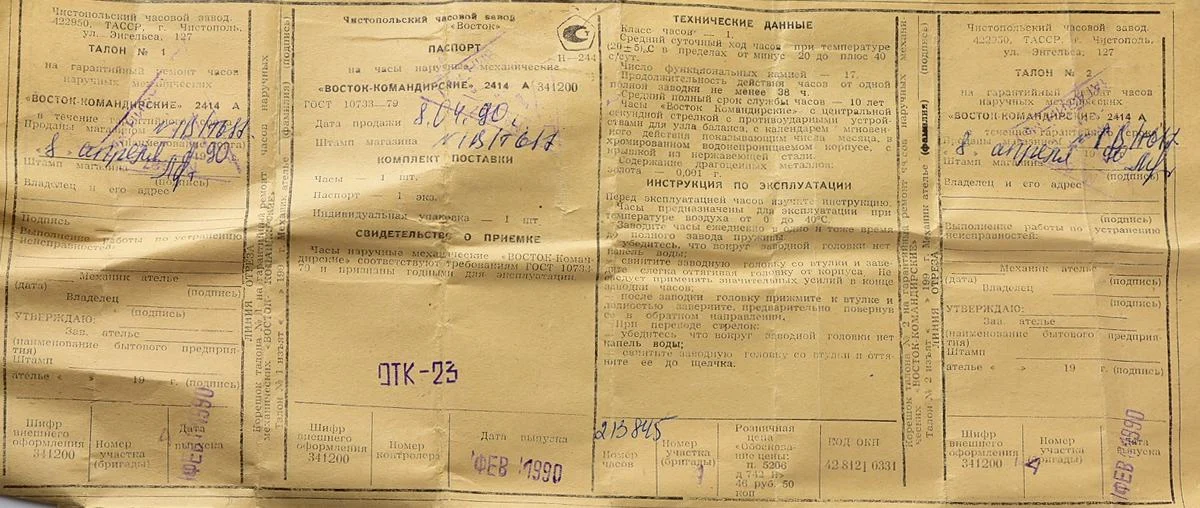 Чистопольский часовой завод.
422950, ТАССР, г. Чистополь.
ул. Энгельса, 127
ТАЛОН № 1
на гарантийный ремонт часов
наручных механических
«ВОСТОК-КОМАНДИРСКИЕ» 2414 А
в течение гарантийного срока
Проданы магазином №
«8» апреля 1990
Штамп
магазина (подпись)
Владелец и его адрес
Подпись
Выполнение работы по устранению
неисправностей:
Механик ателье
(дата) (подпись)
Владелец
(подпись)
УТВЕРЖДАЮ:
Зав. ателье
(наименование бытового предприя-
тия)
Штамп
ателье « » 19 г. (подпись)
Шифр
внешнего
оформления
341200
Номер
участка
(бригады)
4
Дата
выпуска
ФЕВ 1990
ЛИНИЯ ОТРЕЗА
Корешок талона № 1 на гарантийный ремонт часов наручных
механических «ВОСТОК-КОМАНДИРСКИЕ»
Талон № 1 изъят « » 199 г. Механик ателье (фамилия) (подпись)
Чистопольский часовой завод
«Восток»
Н—244
ПАСПОРТ
на часы наручные механические
«ВОСТОК-КОМАНДИРСКИЕ» 2414 А 341200
ГОСТ 10733—79
Дата продажи 8.04.90 г.
Штамп магазина
КОМПЛЕКТ ПОСТАВКИ
Часы — 1 шт.
Паспорт — 1 экз.
Индивидуальная упаковка — 1 шт
СВИДЕТЕЛЬСТВО О ПРИЕМКЕ
Часы наручные механические «ВОСТОК-Коман-
дирские» соответствуют требованиям ГОСТ 10733—
79 и признаны годными для эксплуатации.
ОТК-23
Шифр
внешнего
оформления
341200
Номер
контролера
Дата выпуска
ФЕВ 1990
ТЕХНИЧЕСКИЕ ДАННЫЕ
Класс часов — 1.
Средний суточный ход часов при температуре
(20±5)°С в пределах от минус 20 до плюс 40
с/сут.
Число функциональных камней — 17.
Продолжительность действия часов от одной
полной заводки не менее 38 ч.
Средний полный срок службы часов — 10 лет
Часы «Восток Командирские» с центральной
секундной стрелкой с противоударными устрой-
ствами для узла баланса, с календарем мгновен-
ного действия, показывающим числа месяца, в
хромированном водонепроницаемом корпусе, с
крышкой из нержавеющей стали.
Содержание драгоценных металлов:
золота — 0,001 г.
ИНСТРУКЦИЯ ПО ЭКСПЛУАТАЦИИ
Перед эксплуатацией часов изучите инструкцию.
Часы предназначены для эксплуатации при
температуре воздуха от 0 до 40°С.
Заводите часы ежедневно в одно и тоже время
до полного завода пружины:
— убедитесь, что вокруг заводной головки нет
капель воды;
— свинтите заводную головку со втулки и заве-
дите слегка оттягивая головку от корпуса. Не
следует применять значительных усилий в конце
заводки часов;
— после заводки головку прижмите к втулке и
полностью заверните, предварительно повернув
ее в обратном направлении.
При переводе стрелок:
— убедитесь, что вокруг заводной головки нет
капель воды;
— свинтите заводную головку со втулки и оття-
ните ее до щелчка.
213845
Номер
часов
Номер
участка
(бригады)
Розничная
цена
Обоснова-
ние цены:
п. 5206
46 руб. 50
коп
КОД ОКП
42 8121 0331
Корешок талона № 2 на гарантийный ремонт часов наручных механи-
ческих «ВОСТОК-КОМАНДИРСКИЕ»
Талон № 2 изъят « » 199 г. Механик ателье (фамилия) (подпись)
ЛИНИЯ ОТРЕЗА
Чистопольский часовой завод.
422950, ТАССР, г. Чистополь.
ул. Энгельса, 127
ТАЛОН № 2
на гарантийный ремонт часов
наручных механических
«ВОСТОК-КОМАНДИРСКИЕ» 2414 А
в течение гарантийного срока
Проданы магазином №
«8» апреля 90
Штамп магазина
(подпись)
Владелец и его адрес
(подпись)
Выполнение работы по устранению
неисправностей:
Механик ателье
(дата) (подпись)
Владелец
(подпись)
УТВЕРЖДАЮ:
Зав. ателье
(наименование бытового предприя-
тия)
Штамп
ателье « » 19 г. (подпись)
Шифр
внешнего
оформления
341200
Номер
участка
(бригады)
4
Дата
выпуска
ФЕВ 1990